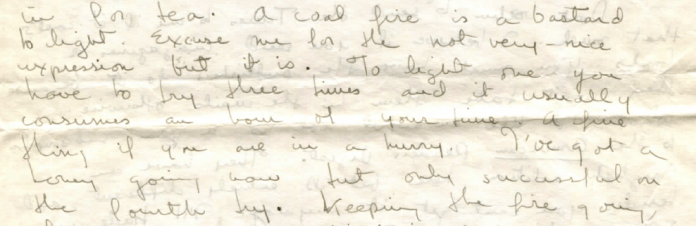 in for tea. A coal fire is a bastard
to light. Excuse me for the not very-nice
expression but it is. To light one you
have to try three times and it usually
consumes an hour of your time. A fine
thing if you are in a hurry. I've got a
honey going now but only successful on
the fourth try. Keeping the fire going,